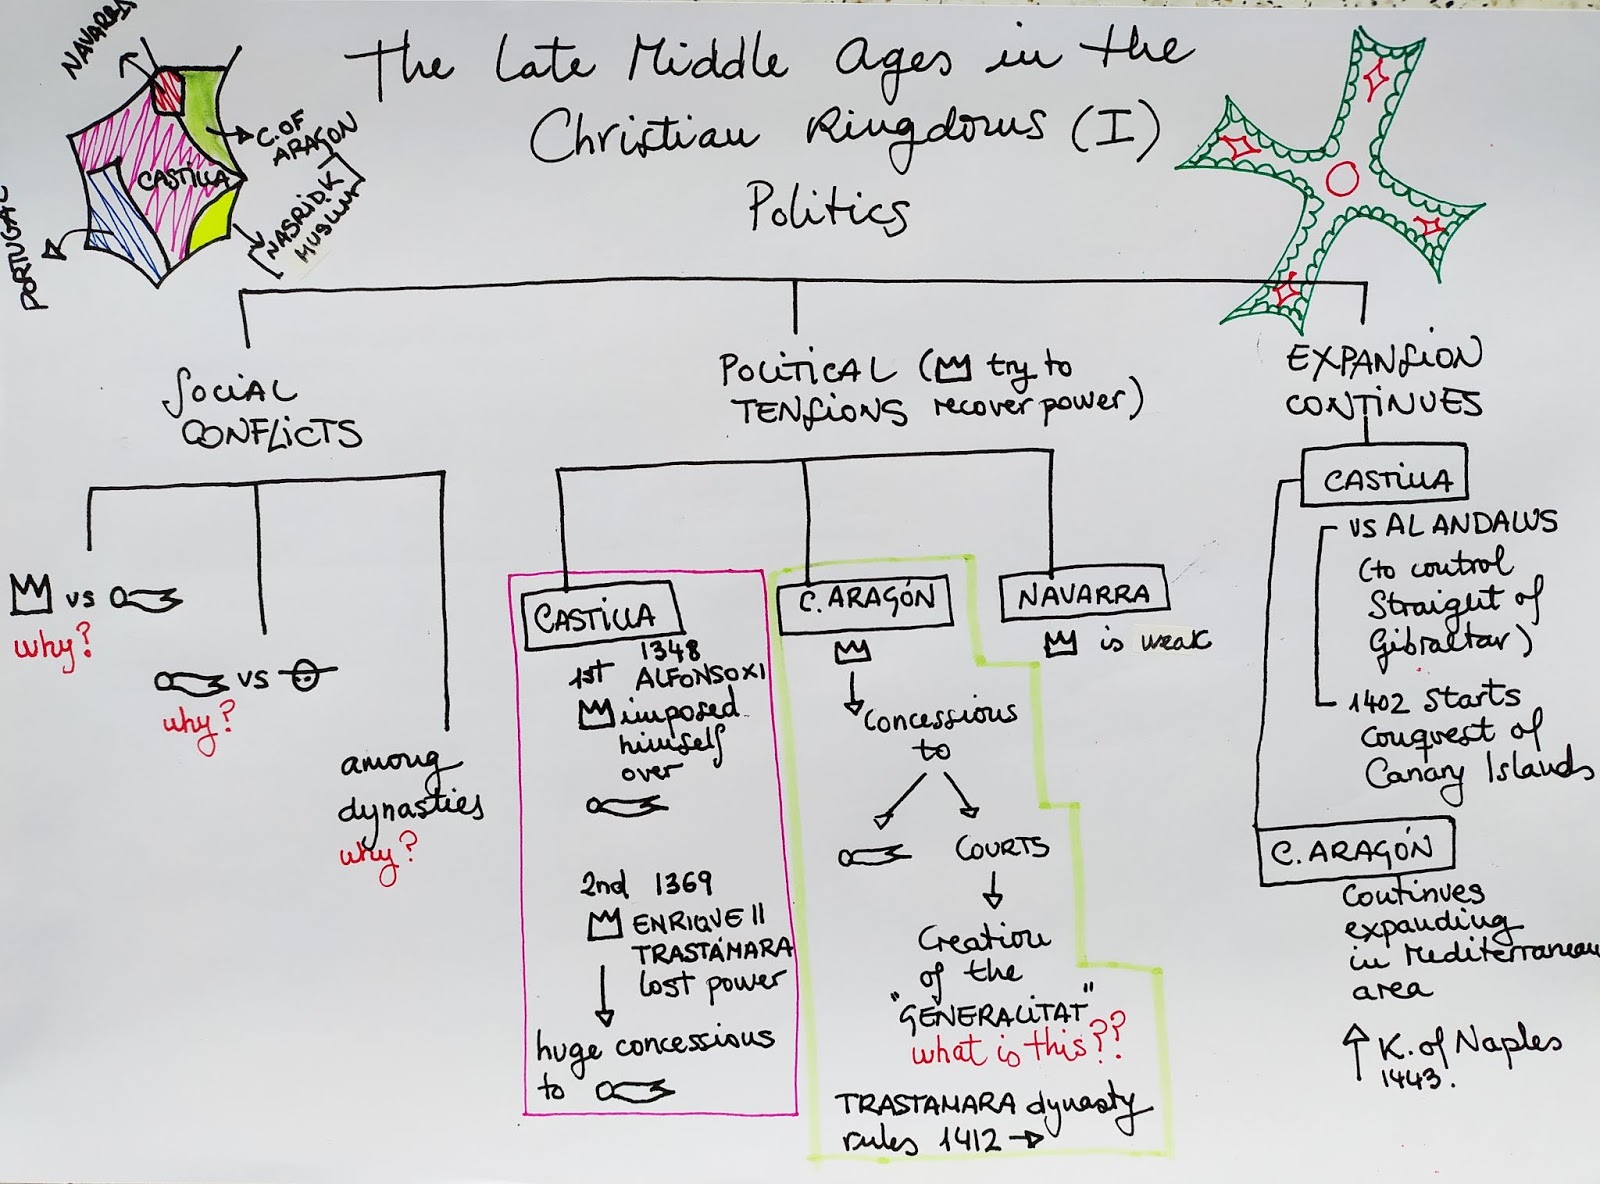 The Late Middle Ages in the
Christian Kingdoms (I)
Politics
NAVARRA
C. OF
ARAGON
CASTILLA
NASRID K
MUSLIM
PORTUGAL
SOCIAL
CONFLICTS
vs
why?
vs
why?
among
dynasties
why?
POLITICAL ( try to
TENSIONS recover power)
CASTILLA
1348
1st ALFONSO XI
imposed
himself
over
2nd 1369
ENRIQUE II
TRASTÁMARA
lost power
huge concessions
to
C. ARAGÓN
Concessions
to
COURTS
Creation
of the
"GENERALITAT"
what is this??
TRASTAMARA dynasty
rules 1412 →
NAVARRA
is weak
EXPANSION
CONTINUES
CASTILLA
VS AL ANDALUS
(to control
Straight of
Gibraltar)
1402 Starts
conquest of
Canary Islands
C. ARAGÓN
Continues
expanding
in Mediterranean
area
↑ K. of Naples
1443.